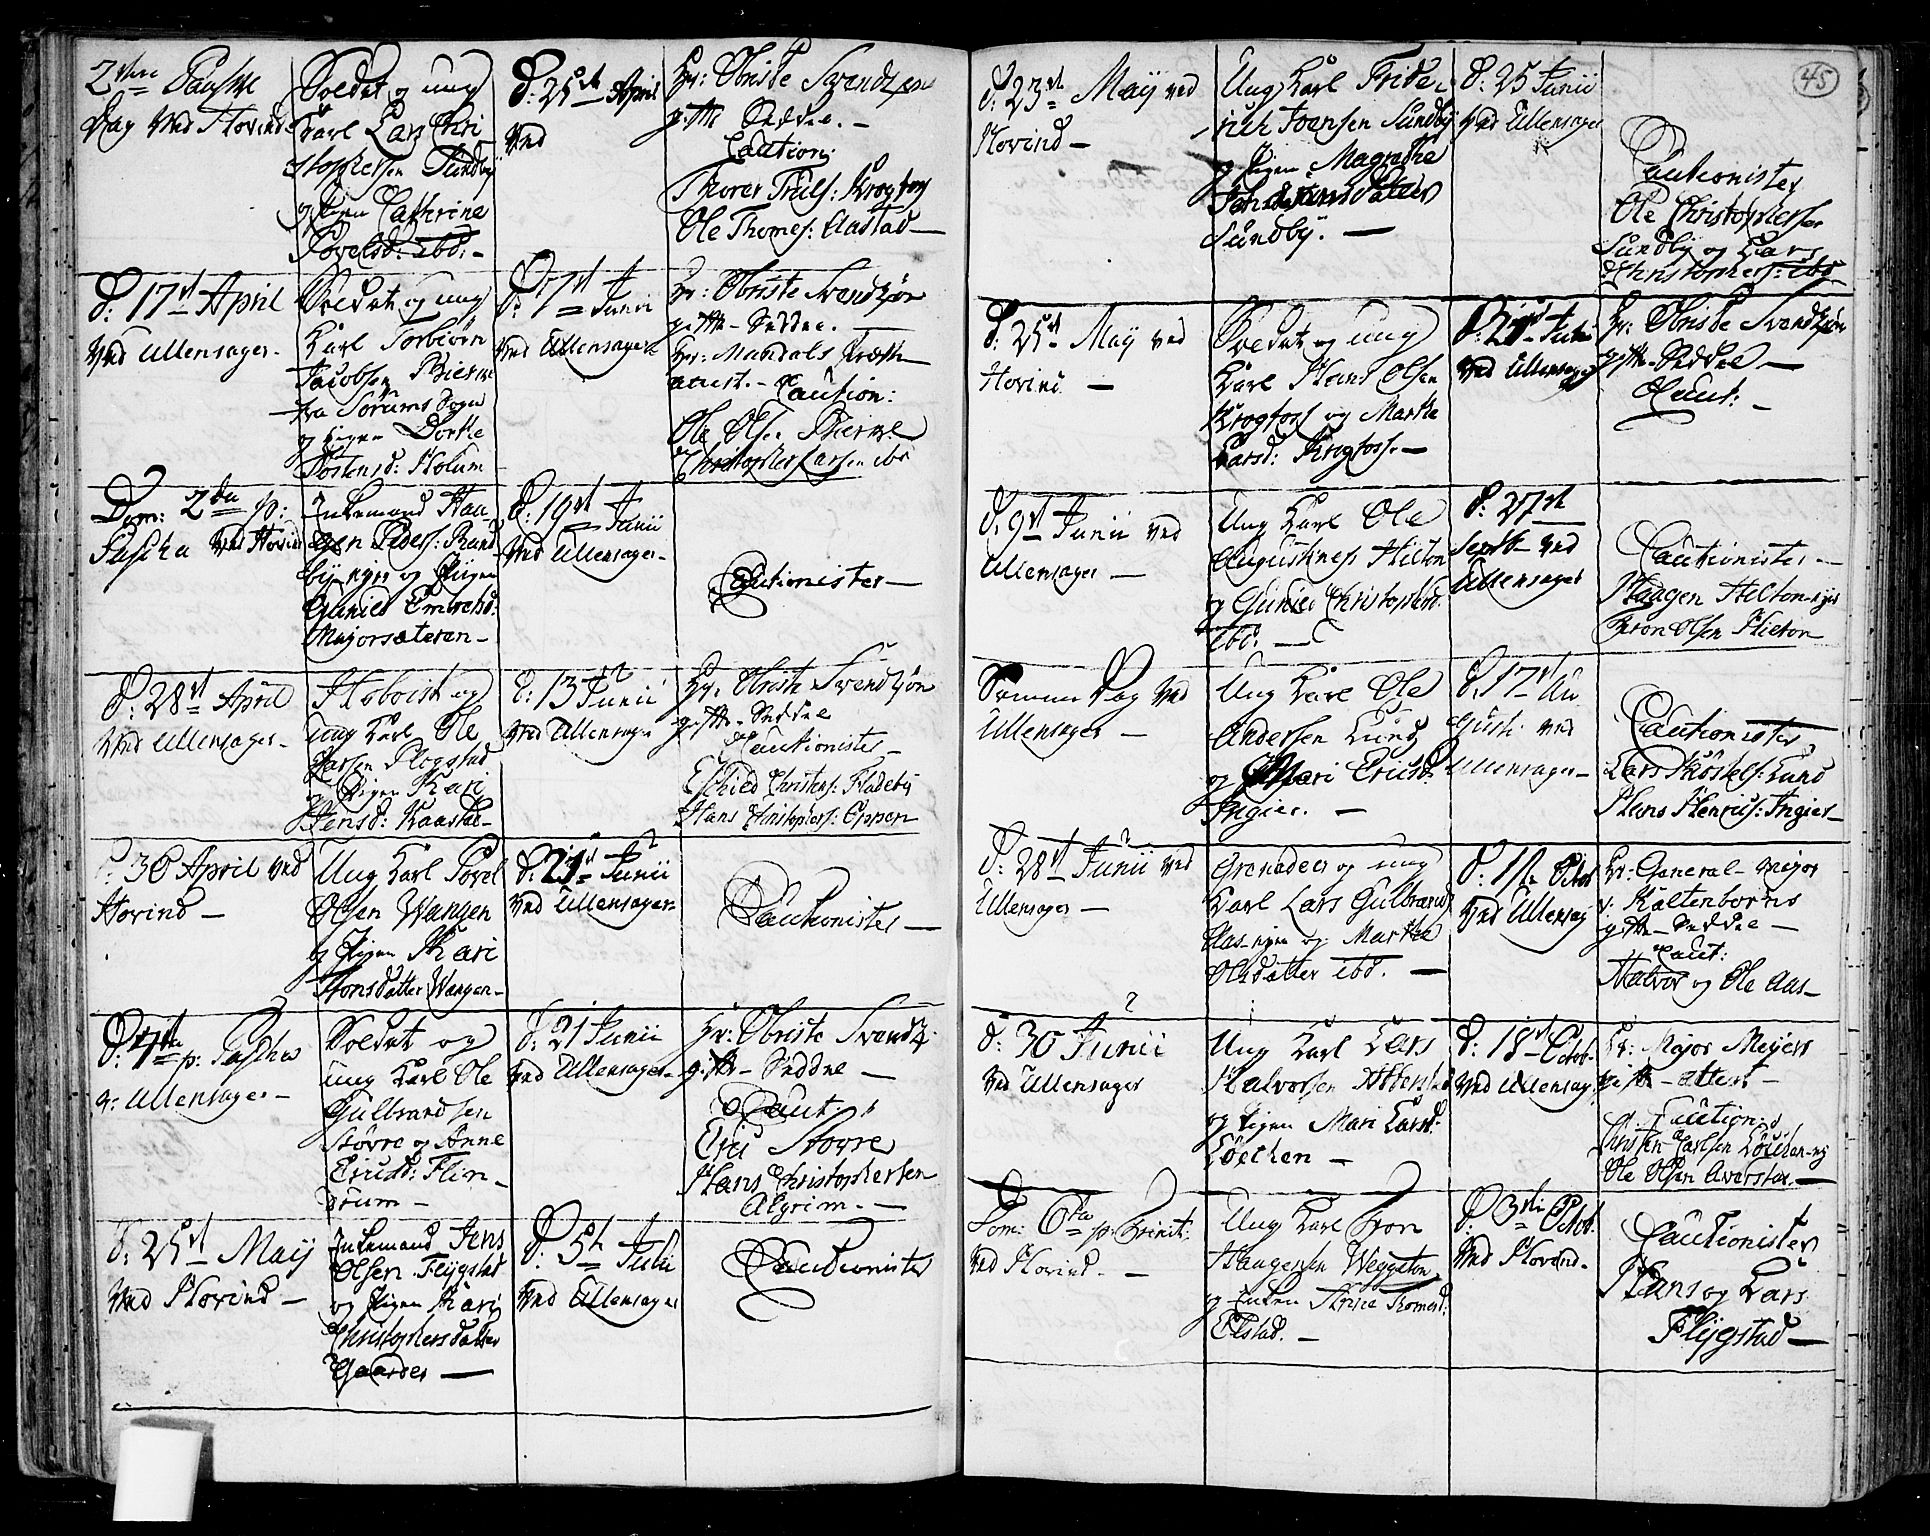 2den Paaske
Dag ved Hovind
Soldat og ung
Karl Lars Chri
stophersen Sundby
og Pigen Cathrine
Povelsd: ibd: -
d: 25de April
ved
Hr: Obriste Svendsen
gifte Seddel. -
Caution:
Thorer Truls: Krogfos
Ole Thomes: Aastad -
d: 17de April
ved Ullensager -
Soldat og ung
Karl Torbiørn
Jacobsen Bierke
fra Sørums Sogn
og Pigen Dorthe
Tostensd: Holum
d: 17de Junii
ved Ullensager
Hr: Obriste Svendsøn
gifte - Seddel. -
Hr: Mandals
attest. - Caution:
Ole Olsen Bierke
Christopher Larsen ibd
Dom: 2da p:
Pascha ved Hovind
Enkemand Haa
gen Peders: Rand
by eyer og Piigen
Gunild Embretsd:
Majorsæteren -
d: 19de Junii
ved Ullensager -
Cautionister -
d: 28de April
ved Ullensager -
Hoboist og
ung Karl Ole
Larsen Flogstad
og Pigen Kari
Jensd: Kaastad -
d: 13 Junii
ved Ullensager
Hr. Obriste Svendsøn
gifte - Seddel
Cautionister -
Eschild Christens: Fladeby
Hans Christophers: Eppen
d: 30 April ved
Hovind -
Ung Karl Povel
Olsen Wangen
og Pigen Kari
Hansdatter Wangen -
d: 21de Junii
ved Ullensager
Cautionister -
d: 4ta p: Pascha
v: Ullensager -
Soldat og
ung Karl Ole
Gulbrandsen
Støvre og Anne
Ericsd: Flin
drum -
d: 21 Junii
ved Ullensager -
Hr: Obriste Svends:
gifte - Seddel -
Caut:
Eric Stovre
Hans Christophersen
Algrim. -
d: 25de Maij
ved Hovind -
Enkemand Jens
Olsen Flygstad
og Pigen Kari
Christophersdatter
Gaarder -
d: 5te Julii
ved Ullensager
Cautionister
45
d: 23de Maij ved
Hovind -
Ung Karl Fride
rich Joensen Sundby
og Pigen Magrethe
Sundby. -
d: 25 Junii
ved Ullensager
Cautionister
Ole Christophersen
Sundby og Lars
Christophers: ibd
d: 25de Maij ved
Hovind -
Soldat og ung
Karl Hans Olsen
Krogfoss og Marthe
Larsd: Krogfoss. -
ved Ullensager
Hr: Obriste Svendsøn
gifte - Seddel -
Caut: -
d. 9de Junii ved
Ullensager -
Ung Karl Ole
Augustines Hilton
og Gunild Christophersd:
ibd: -
d: 27de
Septb - ved
Ullensager
Cautionister -
Haagen Hilton - eyer
Tron Olsen Hilton
Samme Dag ved
Ullensager -
Ung Karl Ole
Andersen Lund
og Mari Ericsd:
Ingier. -
d. 17de Au
gusti ved
Ullensager -
Cautionister
Lars Lund
Hans Henrics: Ingier -
d: 28de Junii ved
Ullensager -
Grenadeer og ung
Karl Lars Gulbrands:
Aas - eyer og Marthe
Olsdatter ibd. -
ved Ullensag
Hr: General - Major
v: Kaltenborns
gifte - Seddel -
Caut:
Halvor og Ole Aas -
d: 30 Junii
ved Ullensager
Ung Karl Lars
Halvorsen
og Pigen Mari Larsd:
Løechen -
d: 18de Octob.
ved Ullensag.
Hr: Major Meijers
gifte - attest -
Caution:
Christen Carlsen Løechen - ey
Ole Olsen Averstad. -
Dom: 6ta p: Trinit:
ved Hovind. -
Ung Karl Tron
Haagensen Weggston
og Enken Anne Thomesd:
Elstad. -
d: 3die Octob:
ved Hovind -
Cautionister
Hans og Lars
Flygstad -